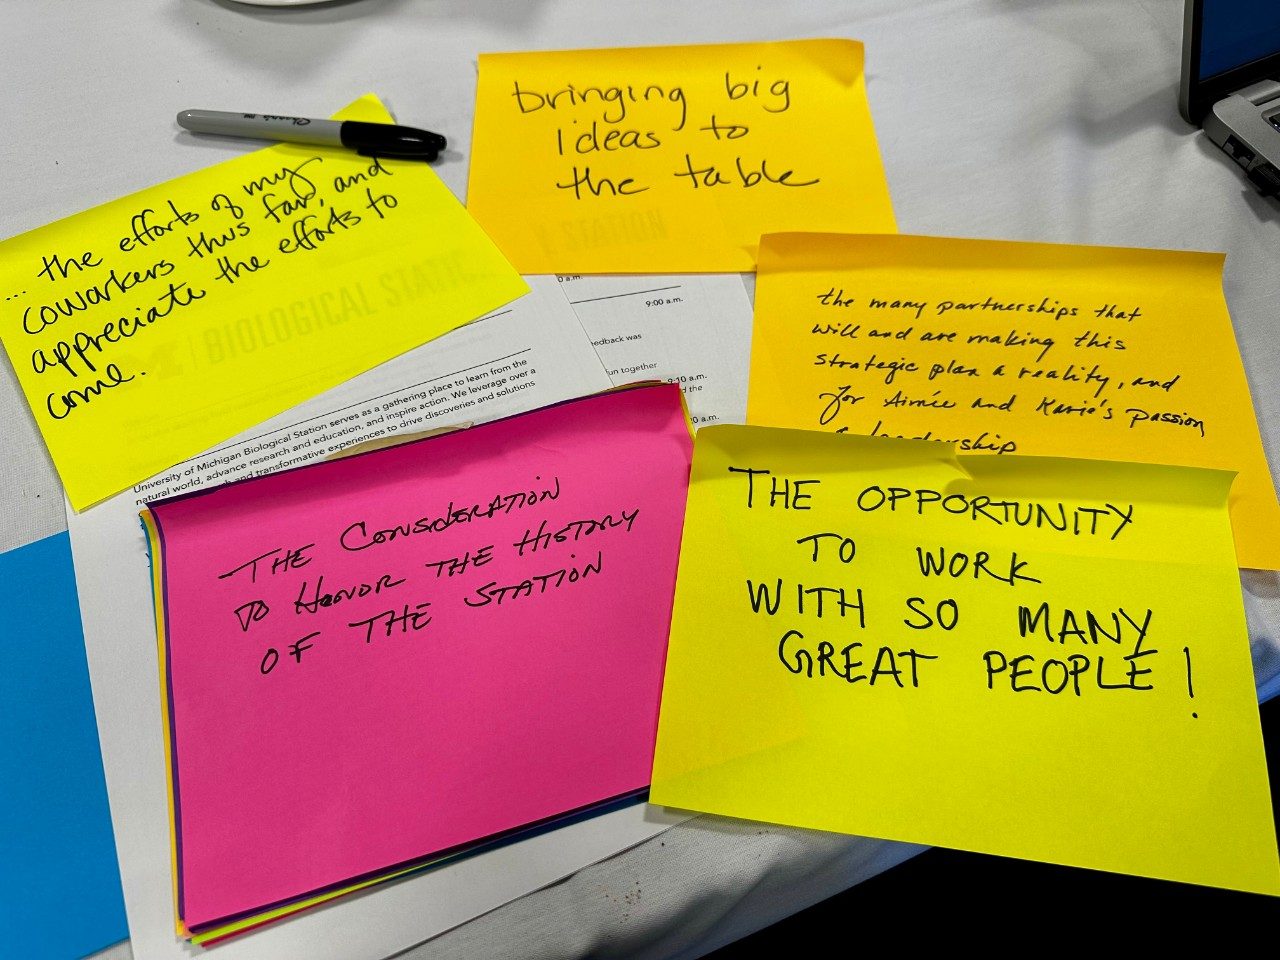 bringing big
ideas to
the table
... the efforts of my
coworkers thus far, and
appreciate the efforts to
come.
BIOLOGICAL STATION
STATION
9:00 a.m.
feedback was
fun together
9:10 a.m.
University of Michigan Biological Station serves as a gathering place to learn from the
natural world, advance research and education, and inspire action. We leverage over a
and transformative experiences to drive discoveries and solutions
the many partnerships that
will and are making this
strategic plan a reality, and
for Aimée and Karie's passion
leadership
THE CONSIDERATION
TO HONOR THE HISTORY
OF THE STATION
THE OPPORTUNITY
TO WORK
WITH SO MANY
GREAT PEOPLE!